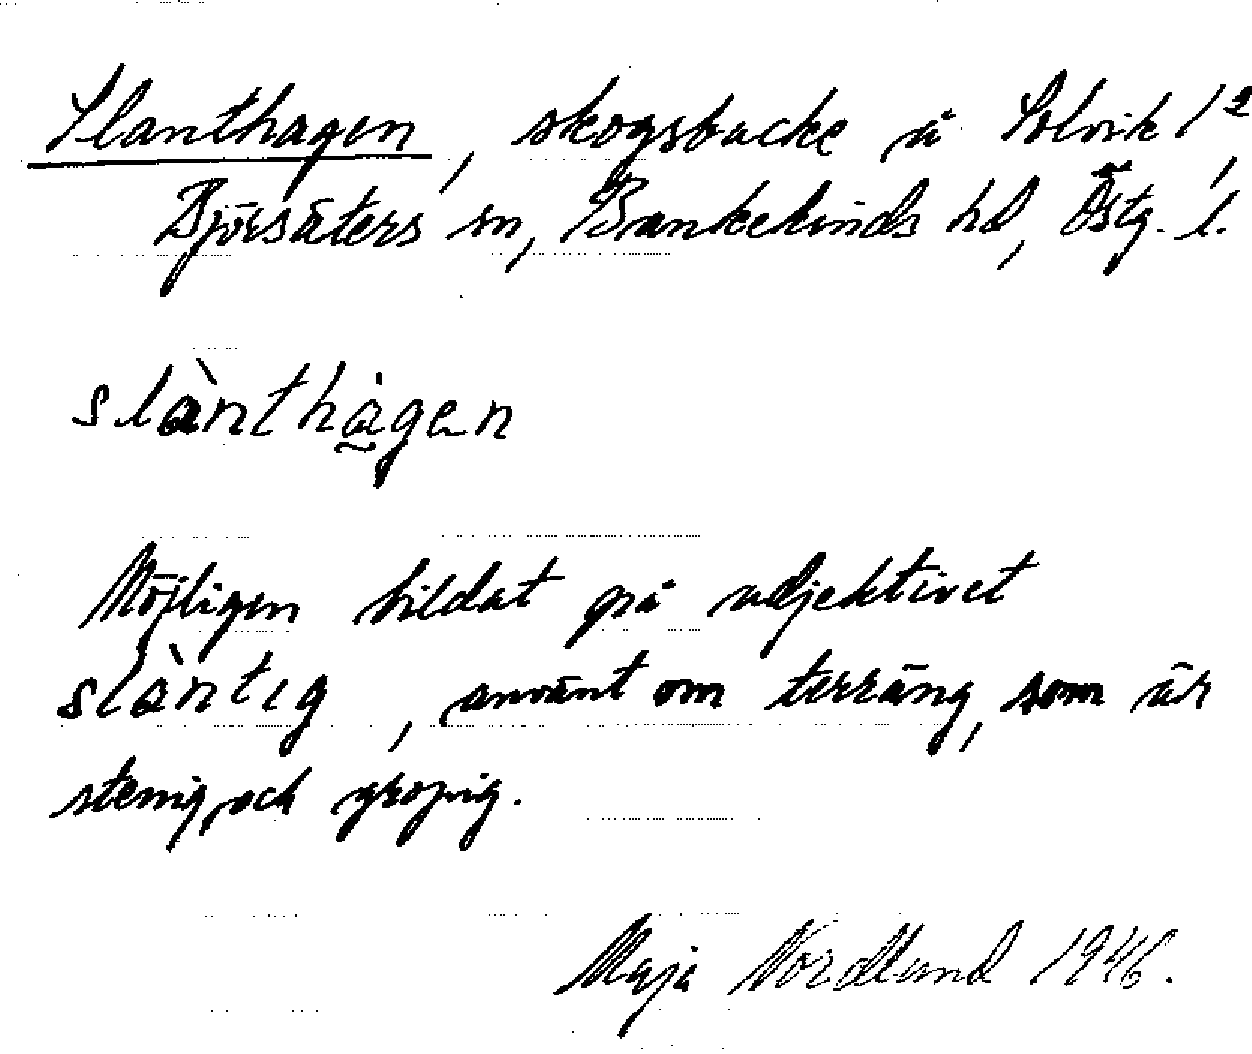 Slanthagen, skogsbacke å Solvik 1²,
Björsäters sn, Bankekinds hd, Östg. l.
slànthàgen
Möjligen bildat på adjektivet
slàntig, använt om terräng, som är
stenig och gropig.
Maja Nordlund 1946.